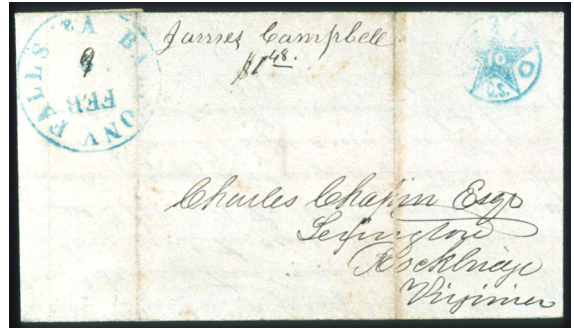 BALCONY FALLS VA
9
FEB
James Campbell
$1.48.
10
CS.
O
Charles Chapin Esqr
Lexington
Rockbridge
Virginia